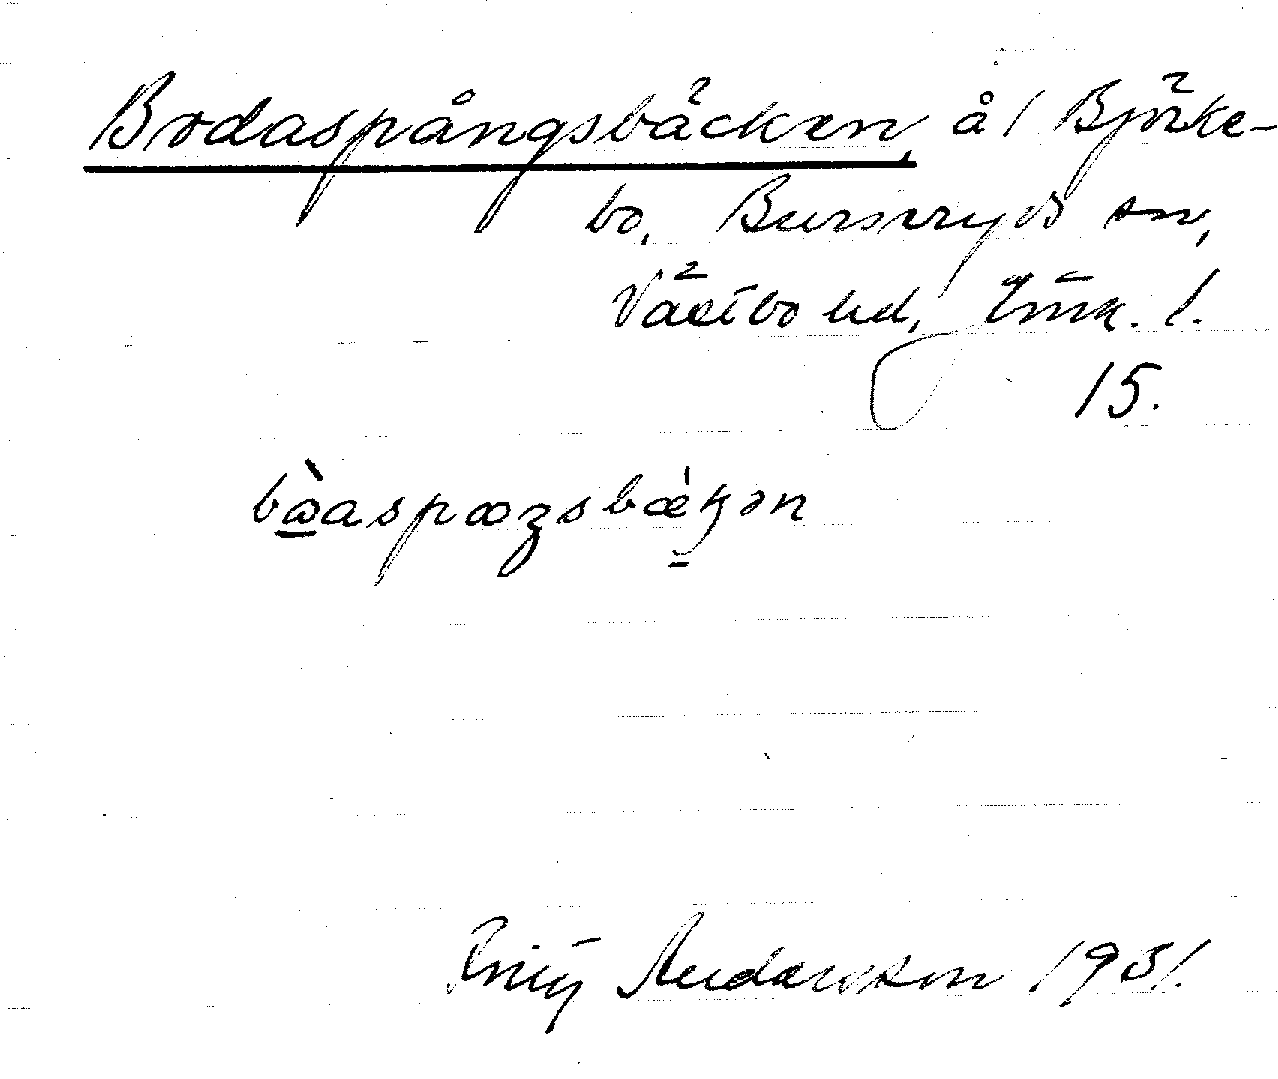 Bodaspångsbäcken, å / Björke-
bo, Burseryds sn,
Västbo hd, Jönk. l.
15.
bàaspæŋsbækən
Andersson 1931.